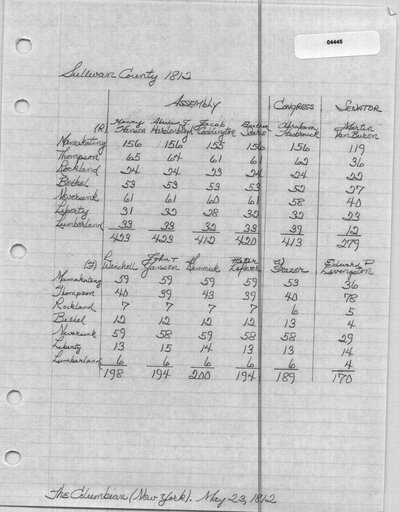 04445
Sullivan County 1812
ASSEMBLY CONGRESS SENATOR
Henry Abraham J. Jacob Abraham Martin
(R) Hardenbergh Coddington Hasbrouck Van Buren
Mamakating 156 156 155 156 156 119
Thompson 65 64 61 61 62 36
Rockland 24 24 23 24 24 22
Bethel 53 53 53 53 52 27
Neversink 61 61 60 61 58 40
Liberty 31 32 28 32 32 23
Lumberland 33 33 32 33 29 12
423 423 412 420 413 279
John T. Edward P.
(F) Jansen Livingston
Mamakating 59 59 59 59 53 36
Thompson 40 39 43 39 40 78
Rockland 7 7 7 7 6 5
Bethel 12 12 12 12 13 4
Neversink 59 58 59 58 58 29
Liberty 13 15 14 13 13 14
Lumberland 6 6 6 6 6 4
198 194 200 194 189 170
The Columbian (New York). May 23, 1812